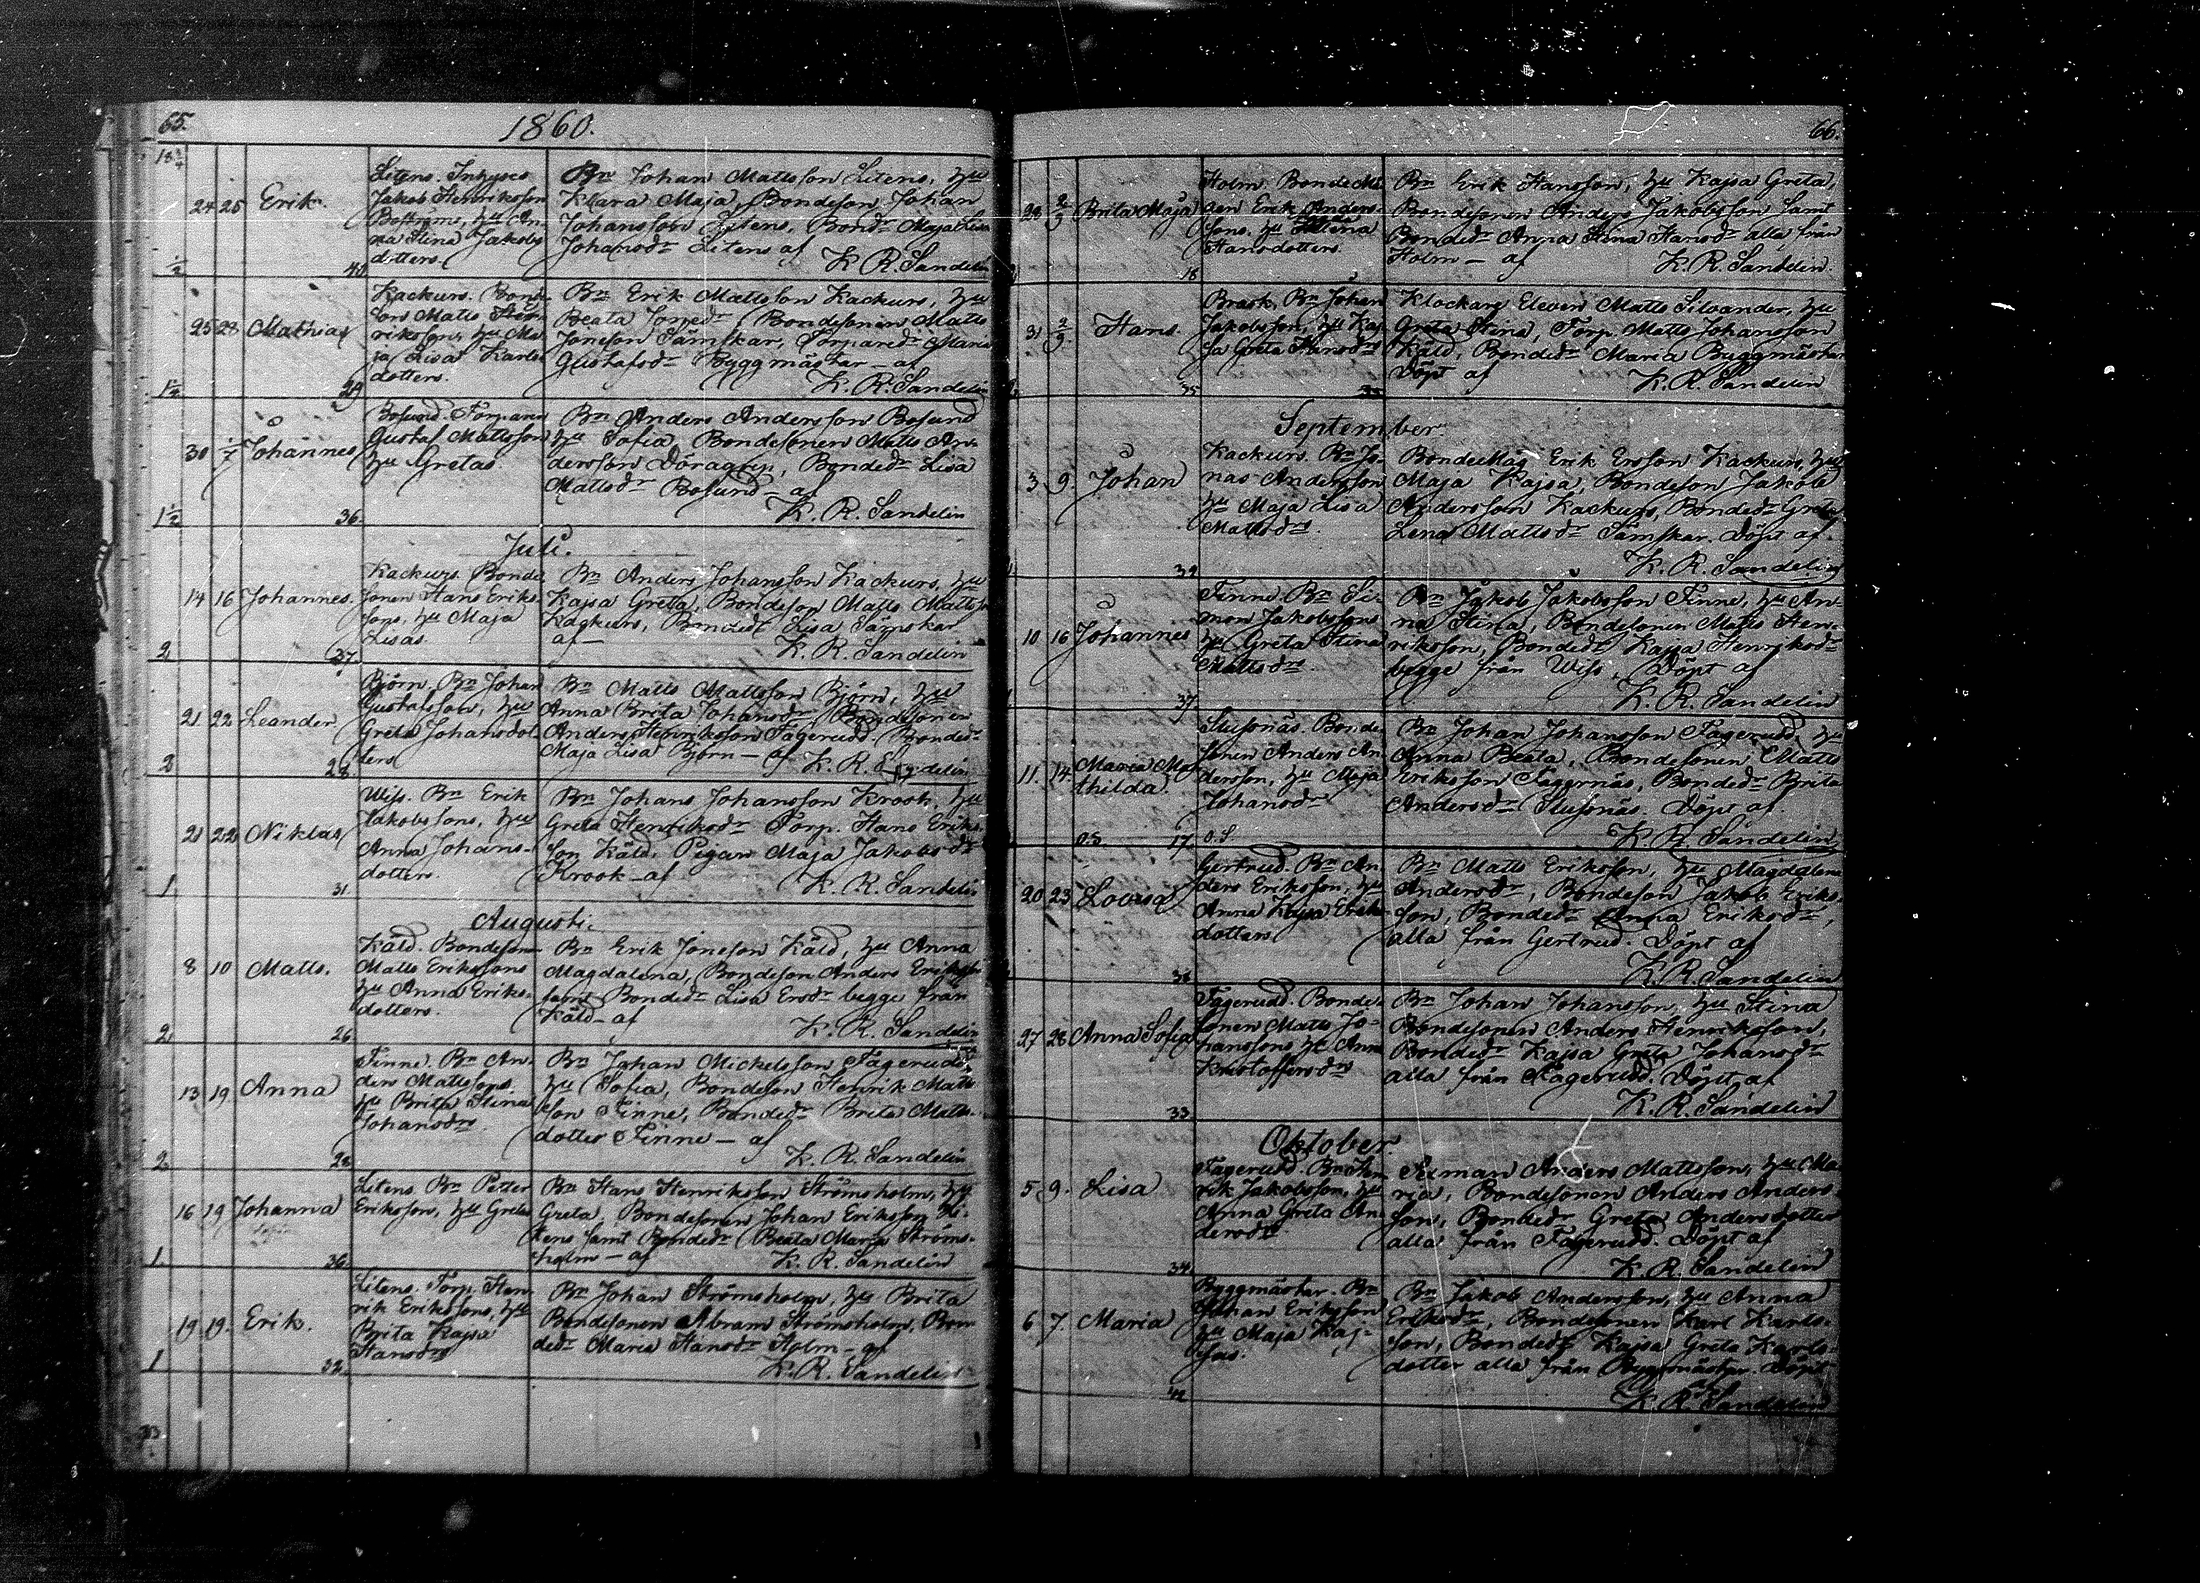 65.
1860.
24 25 Erik.
Litens. Inhyses
Jakob Henriksson
Boströms, hu An-
na Stina Jakobs
dotters.
40
Bn Johan Mattsson Litens, hu
Klara Maja, Bondeson Johan
Johansson Litens, Bondedr Maja Lisa
Johansdr Litens af
K. R. Sandelin
25 28 Mathias
Kackurs. Bonde-
son Matts Hen-
riksson, hu Ma-
ja Lisa Karls-
dotters.
29
Bn Erik Mattsson Kackurs, hu
Beata Jonsdr Bondesonen Matts
Jonsson Sämskar, Torparedr Maria
Gustafsdr Byggmästar - af
K. R. Sandelin
30 1/7 Johannes
Bosund. Torparen
Gustaf Mattsson
hu Gretas
36
1 1/2
Bn Anders Andersson Bosund
hu Sofia, Bondesonen Matts An-
dersson Döragrip, Bondedr Lisa
Mattsdr Bosund - af
K. R. Sandelin
Juli.
14 16 Johannes.
Kackurs. Bonde
sonen Hans Eriks-
sons, hu Maja
Lisas.
2
37
Bn Anders Johansson Kackurs, hu
Kajsa Greta, Bondeson Matts Mattss
Kackurs, Bondedr Lisa Sämskar
af
K. R. Sandelin
21 22 Leander
Björn. Bn Johan
Gustafsson, hu
Greta Johansdot-
ters
2
28
Bn Matts Mattsson Björn, hu
Anna Brita Johansdr, Bondesonen
Anders Henriksson Fagerudd, Bondedr
Maja Lisa Björn - af K. R. Sandelin
21 22 Niklas
Wiss. Bn Erik
Jakobssons, hu
Anna Johans-
dotters.
1
31
Bn Johans Johansson Krook, hu
Greta Henriksdr Torp. Hans Eriks-
son Käld. Pigan Maja Jakobsdr
Krook - af
K. R. Sandelin
Augusti.
8 10 Matts.
Käld. Bondeson
Matts Erikssons
hu Anna Eriks-
dotters.
2
26
Bn Erik Jonsson Käld, hu Anna
Magdalena, Bondeson Anders Eriksson
samt Bondedr Lisa Ersdr begge från
Käld - af
K. R. Sandelin
13 19 Anna
Finne. Bn An-
ders Mattssons
hu Brita Stina
Johansdrs
2
28
Bn Johan Mickelsson Fagerudd,
hu Sofia, Bondeson Henrik Matts-
son Finne, Bondedr Brita Matts-
dotter Finne - af
K. R. Sandelin
16 19 Johanna
Litens Bn Petter
Eriksson, hu Greta
1
36
Bn Hans Henriksson Strömsholm, hu
Greta, Bondesonen Johan Eriksson Li-
tens samt Bondedr Beata Maria Ströms-
holm - af
K. R. Sandelin
19 19. Erik.
Litens. Torp. Hen-
rik Erikssons, hu
Brita Kajsa
Hansdrs
1
32
Bn Johan Strömsholm, hu Brita
Bondesonen Abram Strömsholm, Bon-
dedr Maria Hansdr Holm - af
K. R. Sandelin
33
66.
28 2/9 Brita Maja
Holm. Bondemå-
gen Erik Anders-
sons. hu Helena
Hansdotters.
18
Bn Erik Hansson, hu Kajsa Greta,
Bondesonen Anders Jakobsson samt
Bondedr Anna Stina Hansdr alla från
Holm - af
K. R. Sandelin.
31 2/9. Hans.
Brask. Bn Johan
Jakobsson, hu Kaj-
sa Greta Hansdrs
35
Klockare Eleven Matts Silvander, hu
Greta Stina, Torp. Matts Johansson
Käld, Bondedr Maria Byggmästar
Döpt af
K. R. Sandelin
September.
3. 9. Johan
Kackurs. Bn Jo-
nas Andersson
hu Maja Lisa
Mattsdrs.
39
Bondemåg Erik Ersson Kackurs, hu
Maja Kajsa, Bondeson Jakob
Andersson Kackurs, Bondedr Greta
Lena Mattsdr Sämskar. Döpt af.
K. R. Sandelin
10 16 Johannes
Finne. Bn Si-
mon Jakobssons
hu Greta Stina
Mattsdrs
37
Bn Jakob Jakobsson Finne, hu An-
na Stina, Bondesonen Matts Hen-
riksson, Bondedr Kajsa Henriksdr
begge från Wiss. Döpt af
K. R. Sandelin
11. 14. Maria Ma-
thilda.
Slusnäs. Bonde-
sonen Anders An-
dersson, hu Maja
Johansdr
o.s. 17 o.s.
Bn Johan Johansson Fagerudd, hu
Anna Beata, Bondesonen Matts
Eriksson Fagernäs, Bondedr Brita
Andersdr Slusnäs. Döpt af
K. R. Sandelin
20 23 Lovisa
Gertrud. Bn An-
ders Eriksson, hu
Anna Kajsa Eriks-
dotters
36
Bn Matts Eriksson, hu Magdalena
Andersdr, Bondeson Jakob Eriks-
son, Bondedr Anna Eriksdr,
alla från Gertrud. Döpt af
K. R. Sandelin
27 28 Anna Sofia
Fagerudd. Bonde-
sonen Matts Jo-
hanssons hu Anna
Kristoffersdrs
33
Bn Johan Johansson, hu Stina
Bondesonen Anders Henriksson,
Bondedr Kajsa Greta Johansdr
alla från Fagerudd. Döpt af
K. R. Sandelin
Oktober.
5. 9. Lisa
Fagerudd. Bn Hen-
rik Jakobsson, hu
Anna Greta An-
dersdr
34
Sexman Anders Mattsson, hu Ma-
ria, Bondesonen Anders Anders-
son, Bondedr Greta Andersdotter
alla från Fagerudd. Döpt af
K. R. Sandelin
6 7. Maria
Byggmästar. Bn
Johan Eriksson
hu Maja Kaj-
sas.
42
Bn Jakob Andersson, hu Anna
Eriksdr, Bondesonen Karl Karls-
son, Bondedr Kajsa Greta Karls-
dotter alla från Byggmästar. Döpt
af K. R. Sandelin